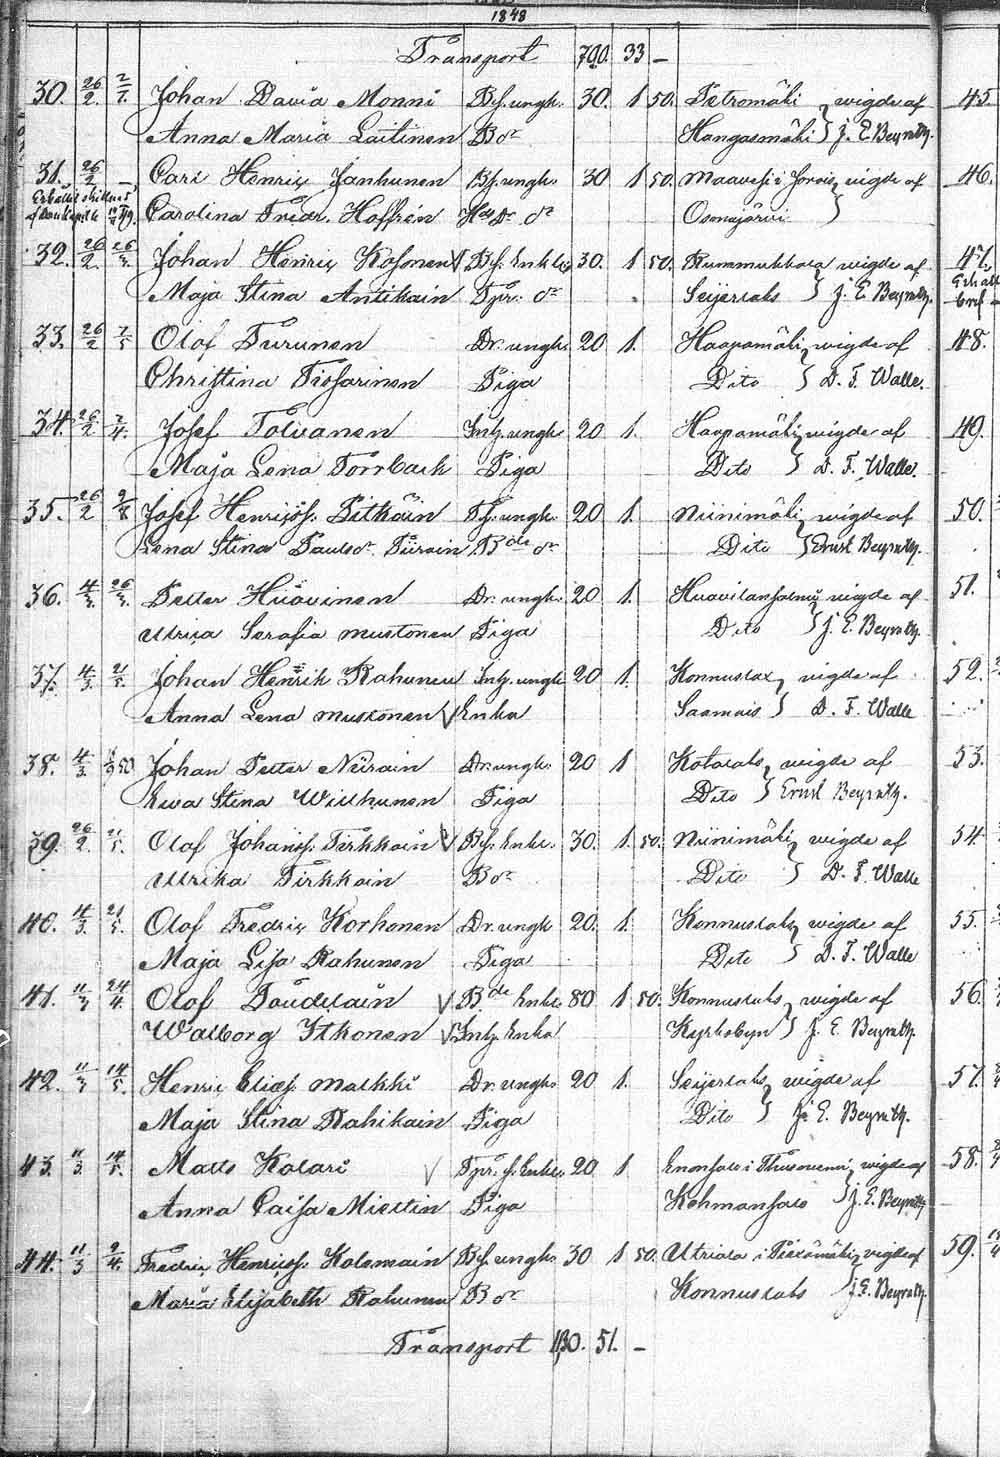 1848
Transport 790. 33 –
30. 26/2. 2/7. Johan David Monni Bs. ungk. 30. 1 50. Petromäki wigde af 45.
Anna Maria Laitinen Bdr Hangasmäki } J. E. Beyrath.
31. 26/2 – Carl Henric Janhunen Bs. ungk. 30 1 50. Maavesi i Jorois wigde af 46.
Carolina Fredr. Hoffrén dr Osmajärvi }
32. 26/2. 26/3. Johan Henric Kosonen √ Bs. Enkling 30. 1 50. Rummukkala wigde af 47.
Maja Stina Antikain Tpr. dr Seijerlaks } J. E. Beyrath.
33. 26/2 7/5 Olof Turunen Dr. ungk. 20 1. Haapamäki wigde af 48.
Christina Tissarinen Piga Dito } D. F. Walle.
34. 26/2 2/4. Josef Tolvanen Inh. ungk. 20 1. Haapamäki wigde af 49.
Maja Lena Torrback Piga Dito } D. F. Walle.
35. 26/2 Josef Henricss. Pitkäin ungk. 20 1. Niinimäki wigde af 50.
Lena Stina Paulsdr. Bde dr Dito } Ernst Beyrath.
36. 4/3. 26/3. Petter Huovinen Dr. ungk. 20 1. wigde af 51.
Ulrica Serafia Mustonen Piga Dito } J. E. Beyrath.
37. 4/3. 21/5. Johan Henrik Rahunen Inh. ungk 20 1. Konnuslax wigde af 52.
Anna Lena Mustonen √ Enka Saamais } D. F. Walle
38. 4/3. 50 Johan Petter Niirain Dr. ungk. 20 1 Kotalaks wigde af 53.
Ewa Stina Willhunen Piga Dito } Ernst Beyrath.
39. 26/2. 21/5. Olof Johanss. Pirkkain √ Bs. Enkl. 30. 1. 50. Niinimäki wigde af 54.
Ulrika Pirkkain Bdr Dito } D. F. Walle
40. 4/3. 21/5. Olof Fredric Korhonen Dr. ungk 20. 1. Konnuslaks wigde af 55.
Maja Lisa Rahunen Piga Dito } D. F. Walle
41. 11/3 24/4. Olof √ Bde Enkl. 80 1 50. Konnuslaks wigde af 56.
Walborg Itkonen √ Inh. Enka Kyrkobyn } J. E. Beyrath.
42. 11/3 14/5. Henric Eliass. Malkki Dr. ungk. 20 1. Seijerlaks wigde af 57.
Maja Stina Rahikain Piga Dito } J. E. Beyrath.
43. 11/3 14/5. Matts Kolari √ Tpr. s. Enkl. 20 1. Enonsalo i wigde af 58.
Anna Caisa Miettin Piga Kohmansalo } J. E. Beyrath.
44. 11/3 9/4. Fredric Henricss. Kolemain Bs. ungk. 30 1 50. Utriala i wigde af 59.
Maria Elisabeth Rahunen Bdr Konnuslaks } J. E. Beyrath.
Transport 1130. 51. –